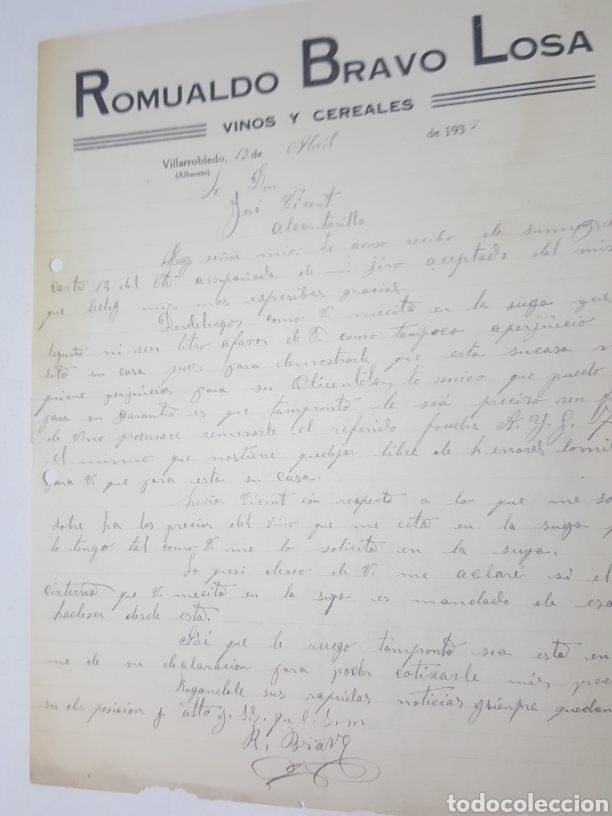 ROMUALDO BRAVO LOSA
VINOS Y CEREALES
Villarrobledo, 13 de Abril de 193
(Albacete)
Sr Don
José Vicent
Alcantarilla
Muy señor mio: Le acuso recibo de su
carta 12 del Cte acompañada de mi jiro aceptado del
que le doy mis mas expresibas gracias.
Desdeluego, como V me cita en la suya que
ni un litro afavor de V como tampoco aperjuicio
esta su casa pues para demostrarle que esta sucasa
quiere perjuicios para su Clientela, lo unico que puedo
para su garantia es que tanpronto le sea preciso un
de Vino procurare remesarle el referido foudre A. Y. G.
el mismo que nostiene quedejar libre de herrores
para V. que para esta su casa.
Señor Vicent con respecto a lo que me
sobre ha los precios del Vino que me cita en la suya
lo tengo tal como V. me lo solicita en la suya.
deseo de V. me aclare si el
cisterna que V. mecita en la suya es mandado de
desde esta.
Asi que le ruego tanpronto sea esta en
me de su declaracion para poder cotizarle mis
Rogandole sus rapidas noticias ysienpre
su disposicion y atto y. S.S. q. e. S. m
R. Bravo
todocoleccion